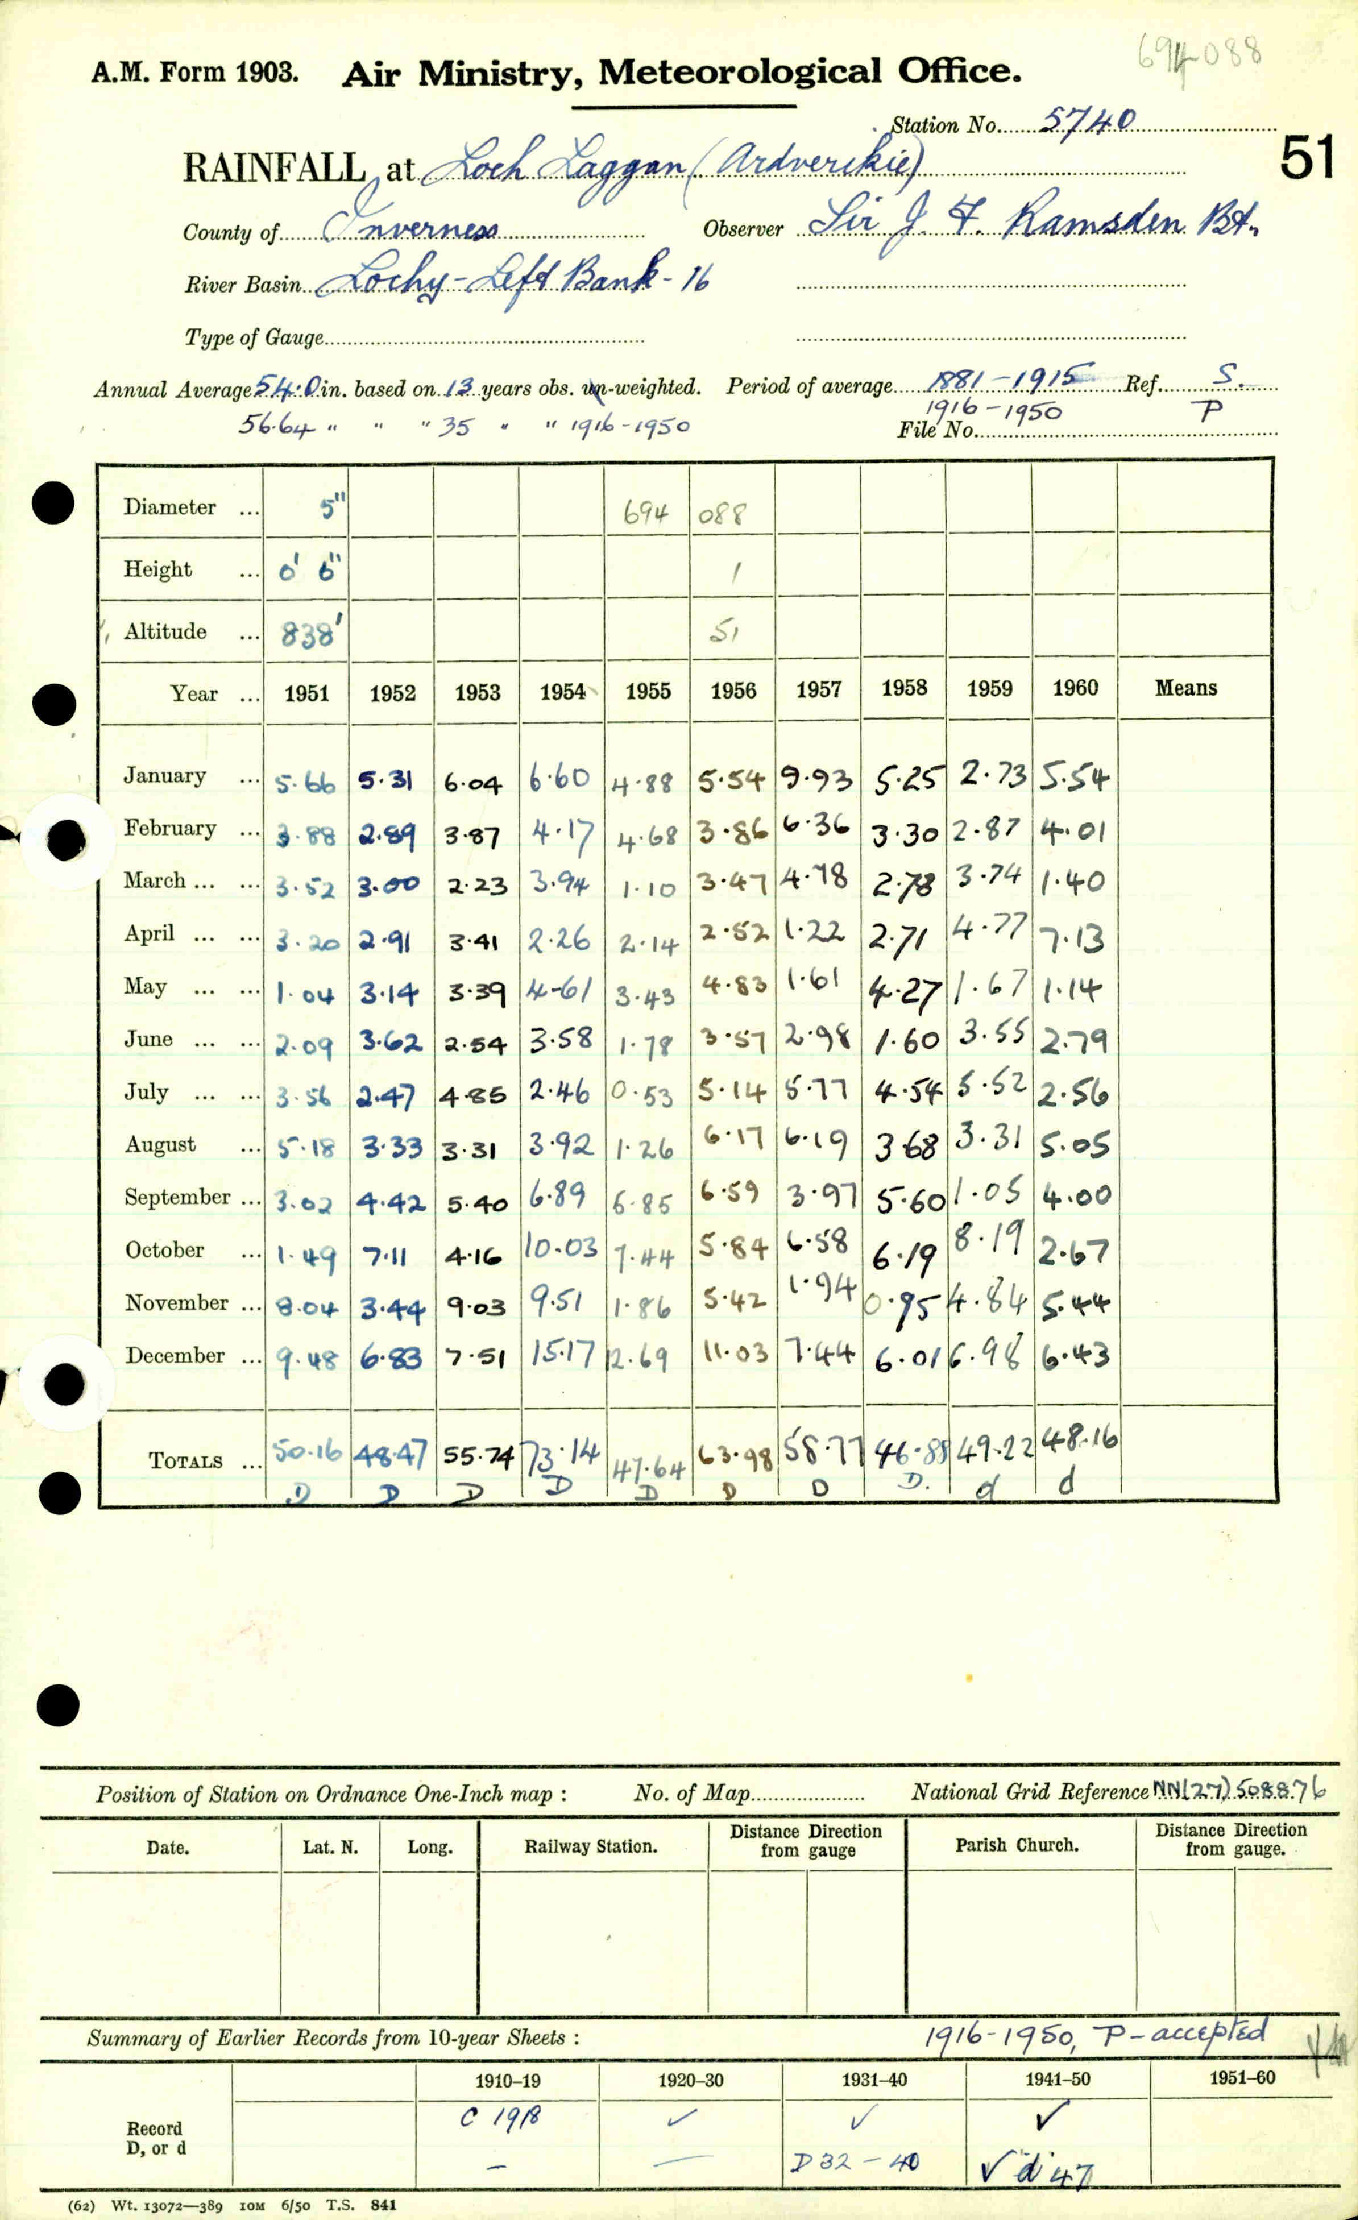 694088
A.M. Form 1903. Air Ministry, Meteorological Office.
Station No. 5740
51
RAINFALL at Loch Laggan (Ardverikie)
County of Inverness Observer Sir J. F. Ramsden Bt.
River Basin Lochy - Left Bank - 16
Type of Gauge
Annual Average 54.0 in. based on 13 years obs. un-weighted. Period of average 1881-1915 Ref. S.
56.64 " " " 35 " " 1916-1950 1916-1950 P
File No.
Diameter ... 5" 694 088
Height ... 0' 6" 1
Altitude ... 838' 51
Year ... 1951 1952 1953 1954 1955 1956 1957 1958 1959 1960 Means
January ... 5.66 5.31 6.04 6.60 4.88 5.54 9.93 5.25 2.73 5.54
February ... 3.88 2.89 3.87 4.17 4.68 3.86 6.36 3.30 2.87 4.01
March ... ... 3.52 3.00 2.23 3.94 1.10 3.47 4.78 2.78 3.74 1.40
April ... ... 3.20 2.91 3.41 2.26 2.14 2.52 1.22 2.71 4.77 7.13
May ... ... 1.04 3.14 3.39 4.61 3.43 4.83 1.61 4.27 1.67 1.14
June ... ... 2.09 3.62 2.54 3.58 1.78 3.57 2.98 1.60 3.55 2.79
July ... ... 3.56 2.47 4.85 2.46 0.53 5.14 5.77 4.54 5.52 2.56
August ... 5.18 3.33 3.31 3.92 1.26 6.17 6.19 3.68 3.31 5.05
September ... 3.02 4.42 5.40 6.89 5.85 6.59 3.97 5.60 1.05 4.00
October ... 1.49 7.11 4.16 10.03 7.44 5.84 6.58 6.19 8.19 2.67
November ... 8.04 3.44 9.03 9.51 1.86 5.42 1.94 0.95 4.84 5.44
December ... 9.48 6.83 7.51 15.17 12.69 11.03 7.44 6.01 6.98 6.43
TOTALS ... 50.16 48.47 55.74 73.14 47.64 63.98 58.77 46.88 49.22 48.16
D D D D D D D D. d d
Position of Station on Ordnance One-Inch map : No. of Map National Grid Reference NN(27)508876
Date. Lat. N. Long. Railway Station. Distance Direction from gauge Parish Church. Distance Direction from gauge.
Summary of Earlier Records from 10-year Sheets : 1916-1950, P-accepted
1910–19 1920–30 1931–40 1941–50 1951–60
Record C 1918 ✓ ✓ ✓
D, or d – — D 32 - 40 ✓ "d" 47
(62) Wt. 13072—389 10M 6/50 T.S. 841